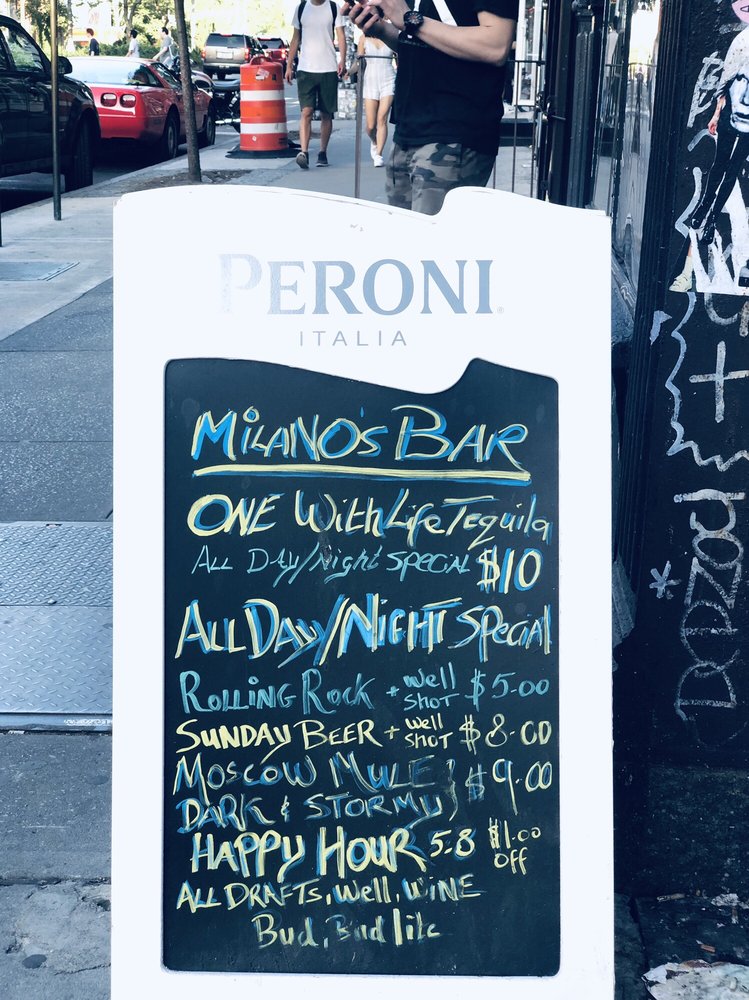 PERONI®
ITALIA
MILANO'S BAR
ONE With Life Tequila
All Day/Night Special $10
All Day/Night Special
Rolling Rock + Well Shot $5.00
Sunday Beer + Well Shot $8.00
Moscow Mule } $9.00
Dark & Stormy }
Happy Hour 5-8 $1.00 Off
All Drafts, Well, Wine
Bud, Bud lite